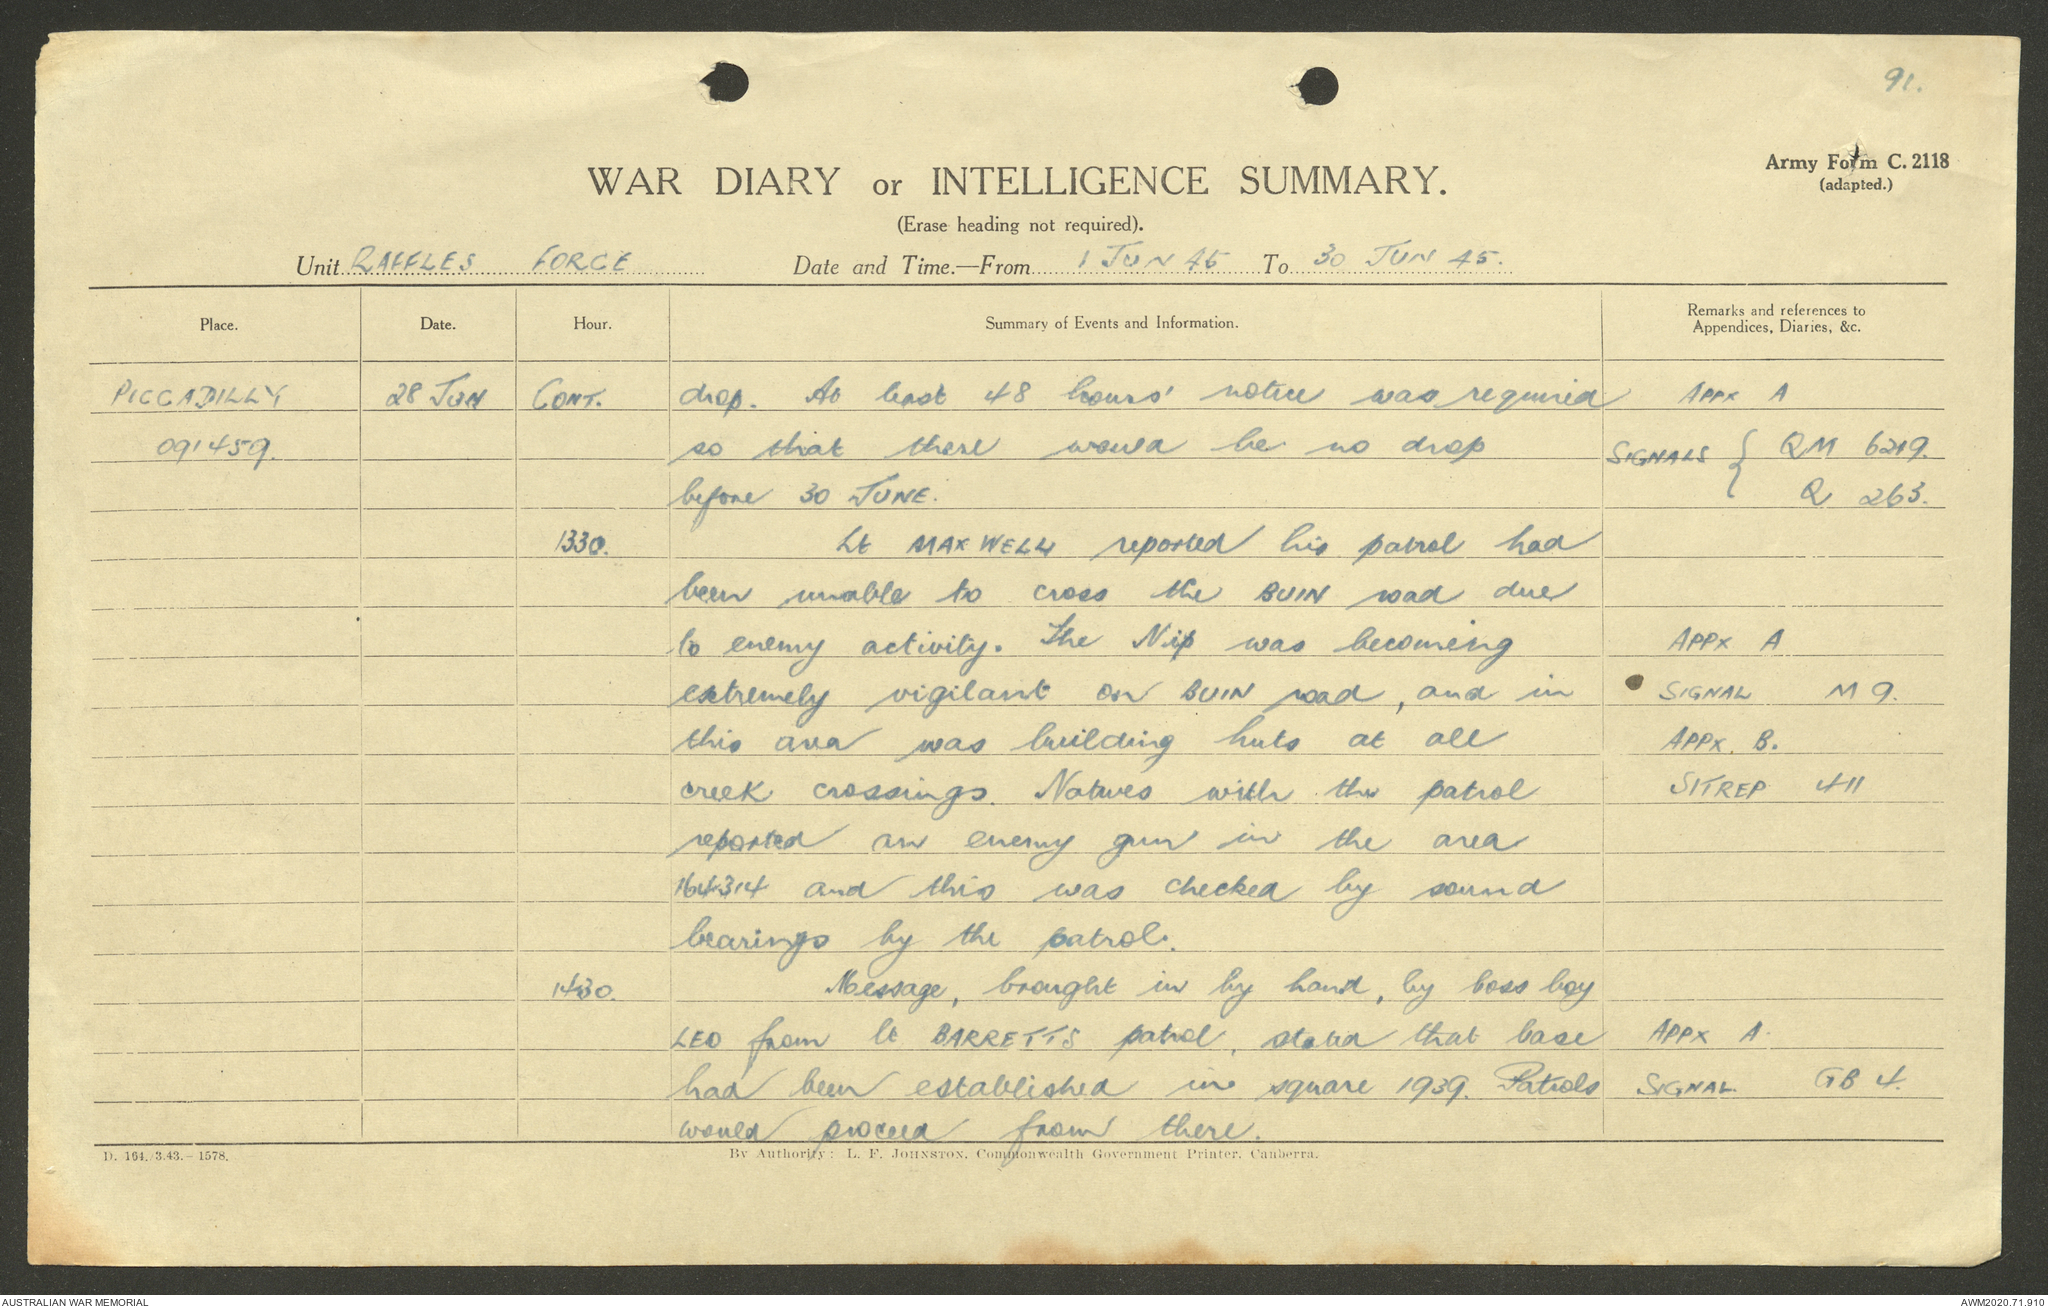 91.
Army Form C. 2118
(adapted.)
WAR DIARY or INTELLIGENCE SUMMARY.
(Erase heading not required).
Unit RAFFLES FORCE Date and Time.—From 1 JUN 45 To 30 JUN 45.
Place. Date. Hour. Summary of Events and Information. Remarks and references to Appendices, Diaries, &c.
PICCADILLY 28 JUN CONT. drop. At least 48 hours' notice was required APPX A
091459. so that there would be no drop SIGNALS { QM 6219.
before 30 JUNE. Q 263.
1330. Lt MAXWELL reported his patrol had
been unable to cross the BUIN road due
to enemy activity. The Nip was becoming APPX A
extremely vigilant on BUIN road, and in SIGNAL M 9.
this area was building huts at all APPX. B.
creek crossings. Natives with the patrol SITREP 411
reported an enemy gun in the area
164314 and this was checked by sound
bearings by the patrol.
1430. Message, brought in by hand, by boss boy
LEO from Lt BARRETTS patrol, stated that base APPX A.
had been established in square 1939. Patrols SIGNAL GB 4.
would proceed from there.
D. 164./3.43.—1578. By Authority: L. F. JOHNSTON, Commonwealth Government Printer, Canberra.
AUSTRALIAN WAR MEMORIAL AWM2020.71.910